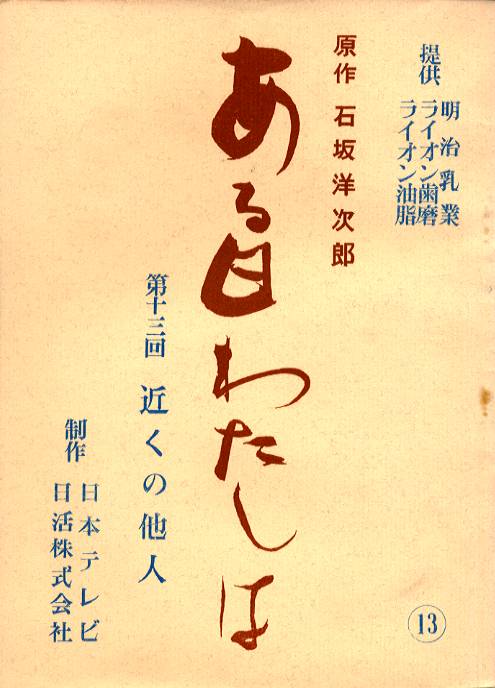 提供
明治乳業
ライオン歯磨
ライオン油脂
原作 石坂洋次郎
ある日わたしは
第十三回 近くの他人
制作
日本テレビ
日活株式会社
13